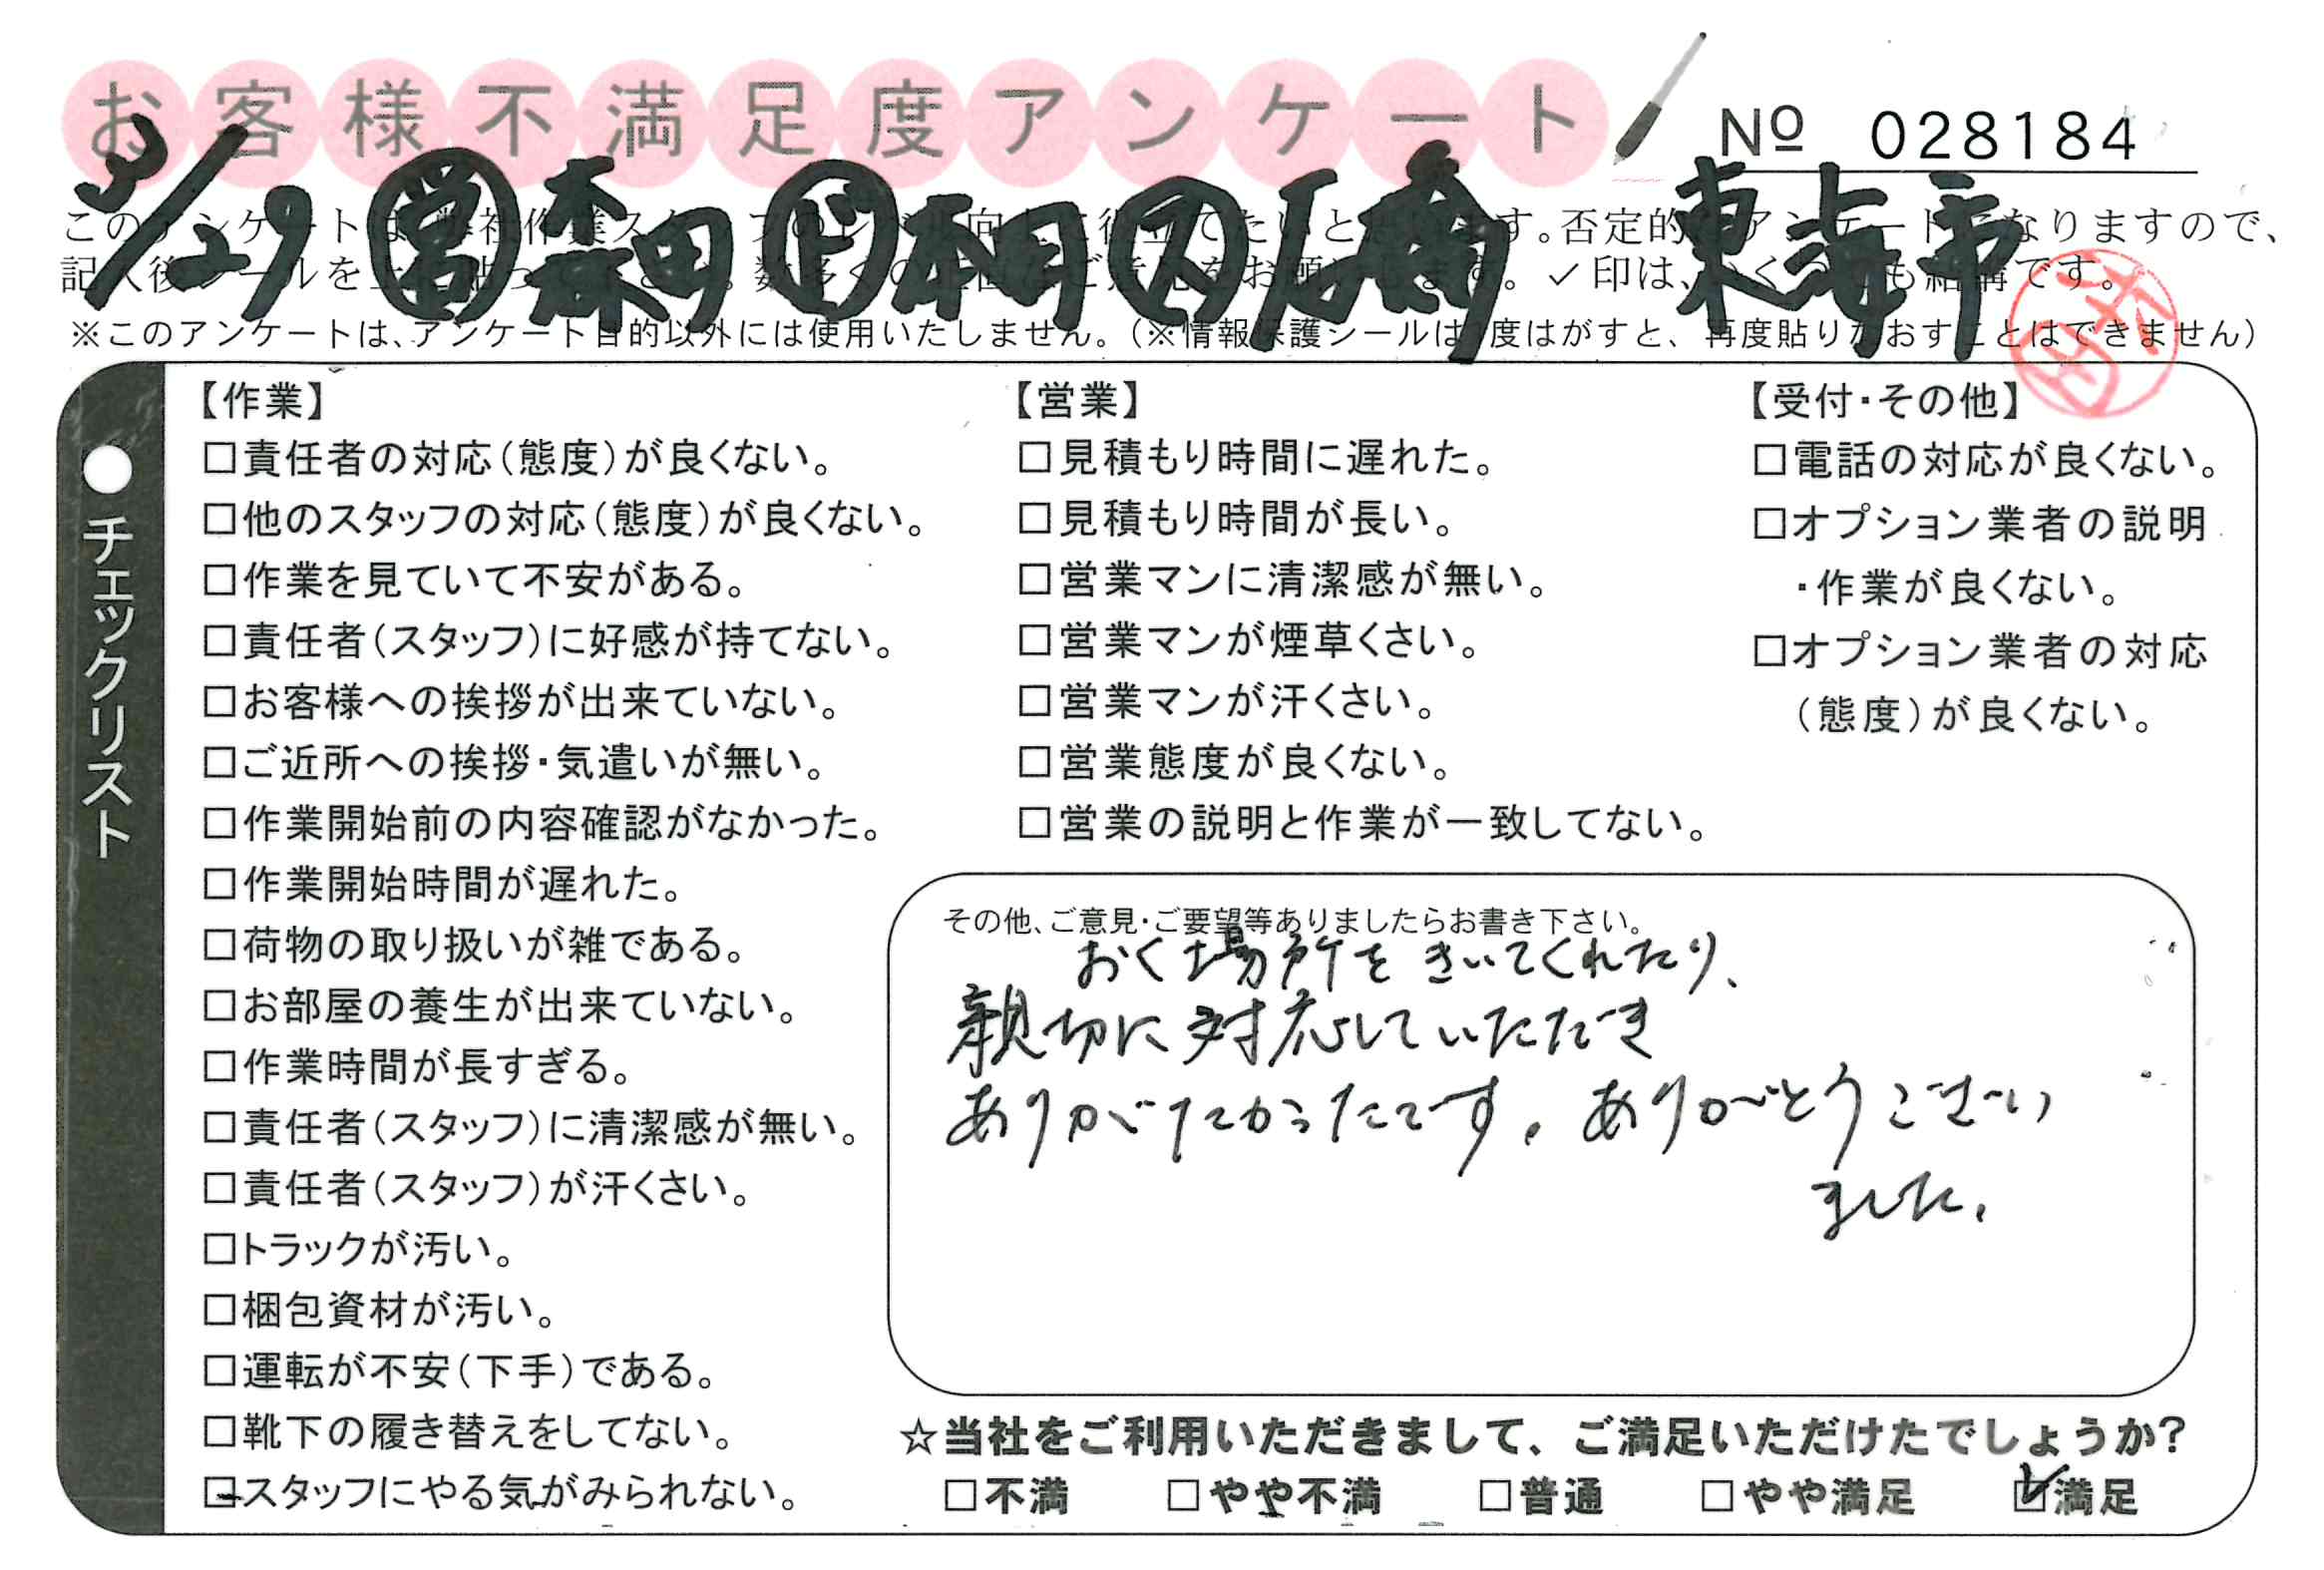 お客様不満足度アンケート
№ 028184
3/29 ㊂森田 ド本田 ス石橋 東海市
このアンケートは、弊社作業スタッフのレベル向上に役立てたいと思います。否定的なアンケートになりますので、
記入後シールを上に貼って下さい。数多くの正直なご意見をお願いします。✓印は、いくつでも結構です。
※このアンケートは、アンケート目的以外には使用いたしません。（※情報保護シールは1度はがすと、再度貼りなおすことはできません）
●チェックリスト
【作業】
□責任者の対応（態度）が良くない。
□他のスタッフの対応（態度）が良くない。
□作業を見ていて不安がある。
□責任者（スタッフ）に好感が持てない。
□お客様への挨拶が出来ていない。
□ご近所への挨拶・気遣いが無い。
□作業開始前の内容確認がなかった。
□作業開始時間が遅れた。
□荷物の取り扱いが雑である。
□お部屋の養生が出来ていない。
□作業時間が長すぎる。
□責任者（スタッフ）に清潔感が無い。
□責任者（スタッフ）が汗くさい。
□トラックが汚い。
□梱包資材が汚い。
□運転が不安（下手）である。
□靴下の履き替えをしてない。
□スタッフにやる気がみられない。
【営業】
□見積もり時間に遅れた。
□見積もり時間が長い。
□営業マンに清潔感が無い。
□営業マンが煙草くさい。
□営業マンが汗くさい。
□営業態度が良くない。
□営業の説明と作業が一致してない。
【受付・その他】
□電話の対応が良くない。
□オプション業者の説明
・作業が良くない。
□オプション業者の対応
（態度）が良くない。
その他、ご意見・ご要望等ありましたらお書き下さい。
おく場所をきいてくれたり、
親切に対応していただき
ありがたかったです。ありがとうござい
ました。
☆当社をご利用いただきまして、ご満足いただけたでしょうか？
□不満 □やや不満 □普通 □やや満足 ☑満足